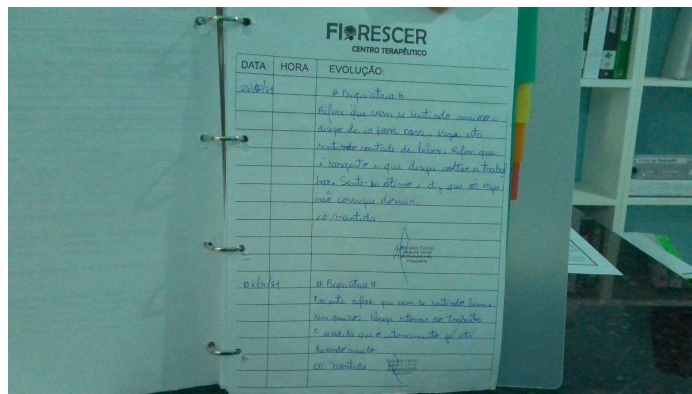 FLORESCER
CENTRO TERAPÊUTICO
DATA HORA EVOLUÇÃO:
# Psiquiatria #
Refere que vem se sentindo ansioso e
deseja de ir para casa. Nega está
sentindo vontade de beber. Refere que
é sargento e que deseja voltar a trabal
har. Sente-se ótimo e diz que às vezes
não consegue dormir.
CD: mantida
Psiquiatria
# Psiquiatria #
Paciente refere que vem se sentindo bem e
sem queixas. Deseja retornar ao trabalho
e acredita que o internamento já está
durando muito.
CD: mantida